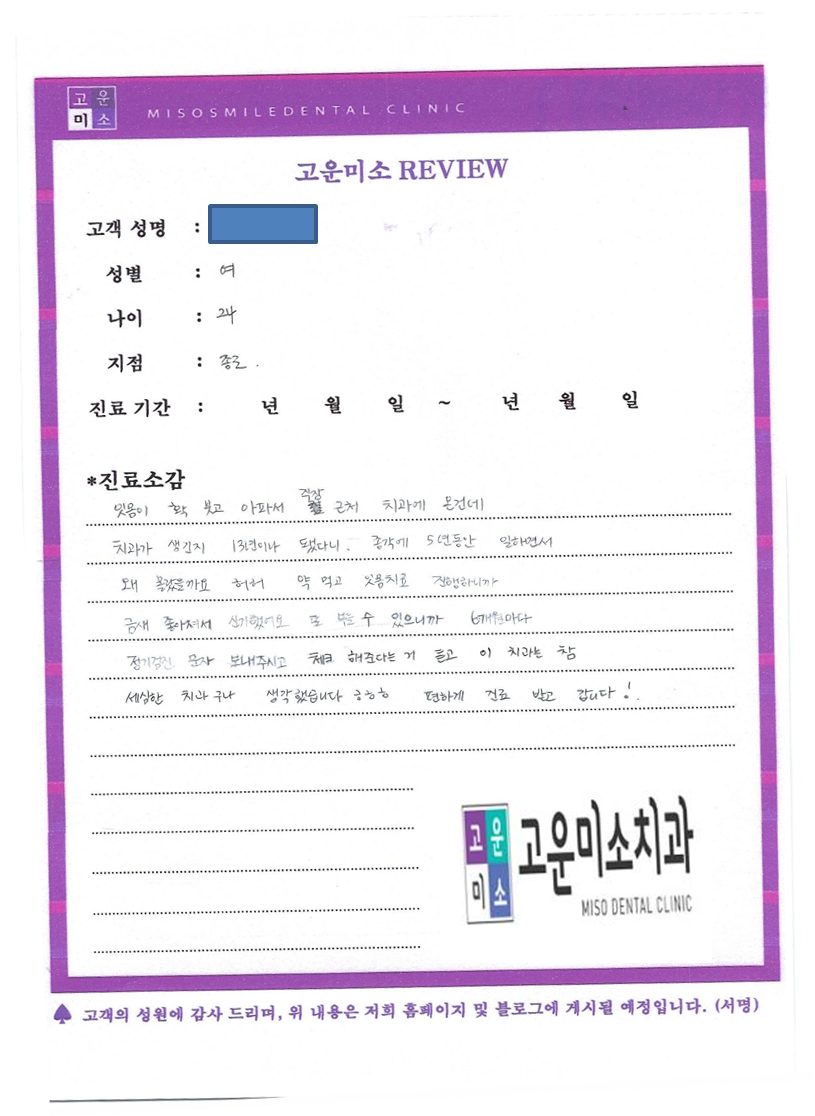 고운
미소
MISOSMILEDENTAL CLINIC
고운미소 REVIEW
고객 성명 :
성별 : 여
나이 : 24
지점 : 종로.
진료 기간 : 년 월 일 ~ 년 월 일
*진료소감
잇몸이 확 붓고 아파서 직장 근처 치과에 온건데
치과가 생긴지 13년이나 됐다니. 종각에 5년동안 일하면서
왜 몰랐을까요 허허 약 먹고 잇몸치료 진행하니까
금새 좋아져서 신기했어요 또 부을 수 있으니까 6개월마다
정기검진 문자 보내주시고 체크 해준다는거 듣고 이 치과는 참
세심한 치과구나 생각했습니다 ㅎㅎㅎ 편하게 진료 받고 갑니다!.
고운
미소
고운미소치과
MISO DENTAL CLINIC
♠ 고객의 성원에 감사 드리며, 위 내용은 저희 홈페이지 및 블로그에 게시될 예정입니다. (서명)